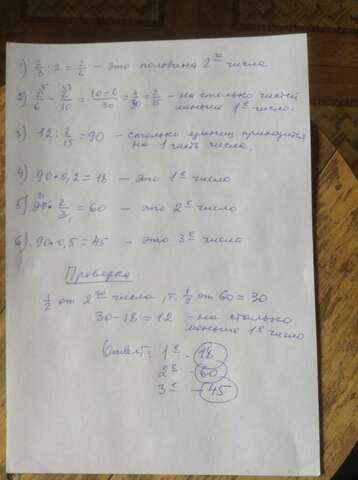 1) 2/3 : 2 = 2/6 – это половина 2го числа
2) 2⁵/6 - 2³/10 = 10-6/30 = 4/30 = 2/15 – на столько частей
меньше 1е число.
3) 12 : 2/15 = 90 – столько единиц приходится
на 1 часть числа.
4) 90 • 0,2 = 18 – это 1е число
5) 90 • 2/3 = 60 – это 2е число
6) 90 • 0,5 = 45 – это 3е число
Проверка
1/2 от 2го числа, т. 1/2 от 60 = 30.
30 - 18 = 12 – на столько
меньше 1е число
Ответ: 1е – 18
2е – 60
3е – 45